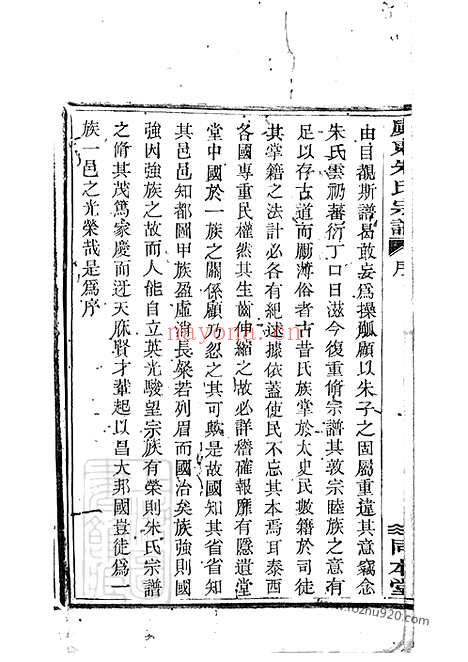 廣東朱氏宗譜 序
同本堂
由目覩斯譜曷敢妄爲操觚顧以朱子之固屬重遠其意竊念
朱氏雲礽蕃衍丁口日滋今復重脩宗譜其敦宗睦族之意有
足以存古道而勵薄俗者古昔氏族掌於太史民數籍於司徒
其掌籍之法計必各有紀述據依蓋使民不忘其本焉耳泰西
各國專重民權然其生齒伸縮之故必詳稽確報靡有隱遺堂
堂中國於一族之關係顧乃忽之其可歟是故國知其省省知
其邑邑知都圖甲族盈虛消長粲若列眉而國治矣族強則國
強因強族之故而人能自立英光駿望宗族有榮則朱氏宗譜
之脩其茂篤家慶而迓天庥賢才輩起以昌大邦國豈徒爲
族一邑之光榮哉是爲序
nayona.cn
www.10zhu209.com